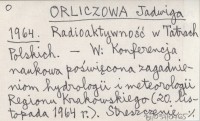 ORLICZOWA Jadwiga
1964. Radioaktywność w Tatrach
Polskich. - W: Konferencja
naukowa poświęcona zagadnie-
niom hydrologii i meteorologii
Regionu Krakowskiego (20. lis-
topada 1964 r.). Streszczenie